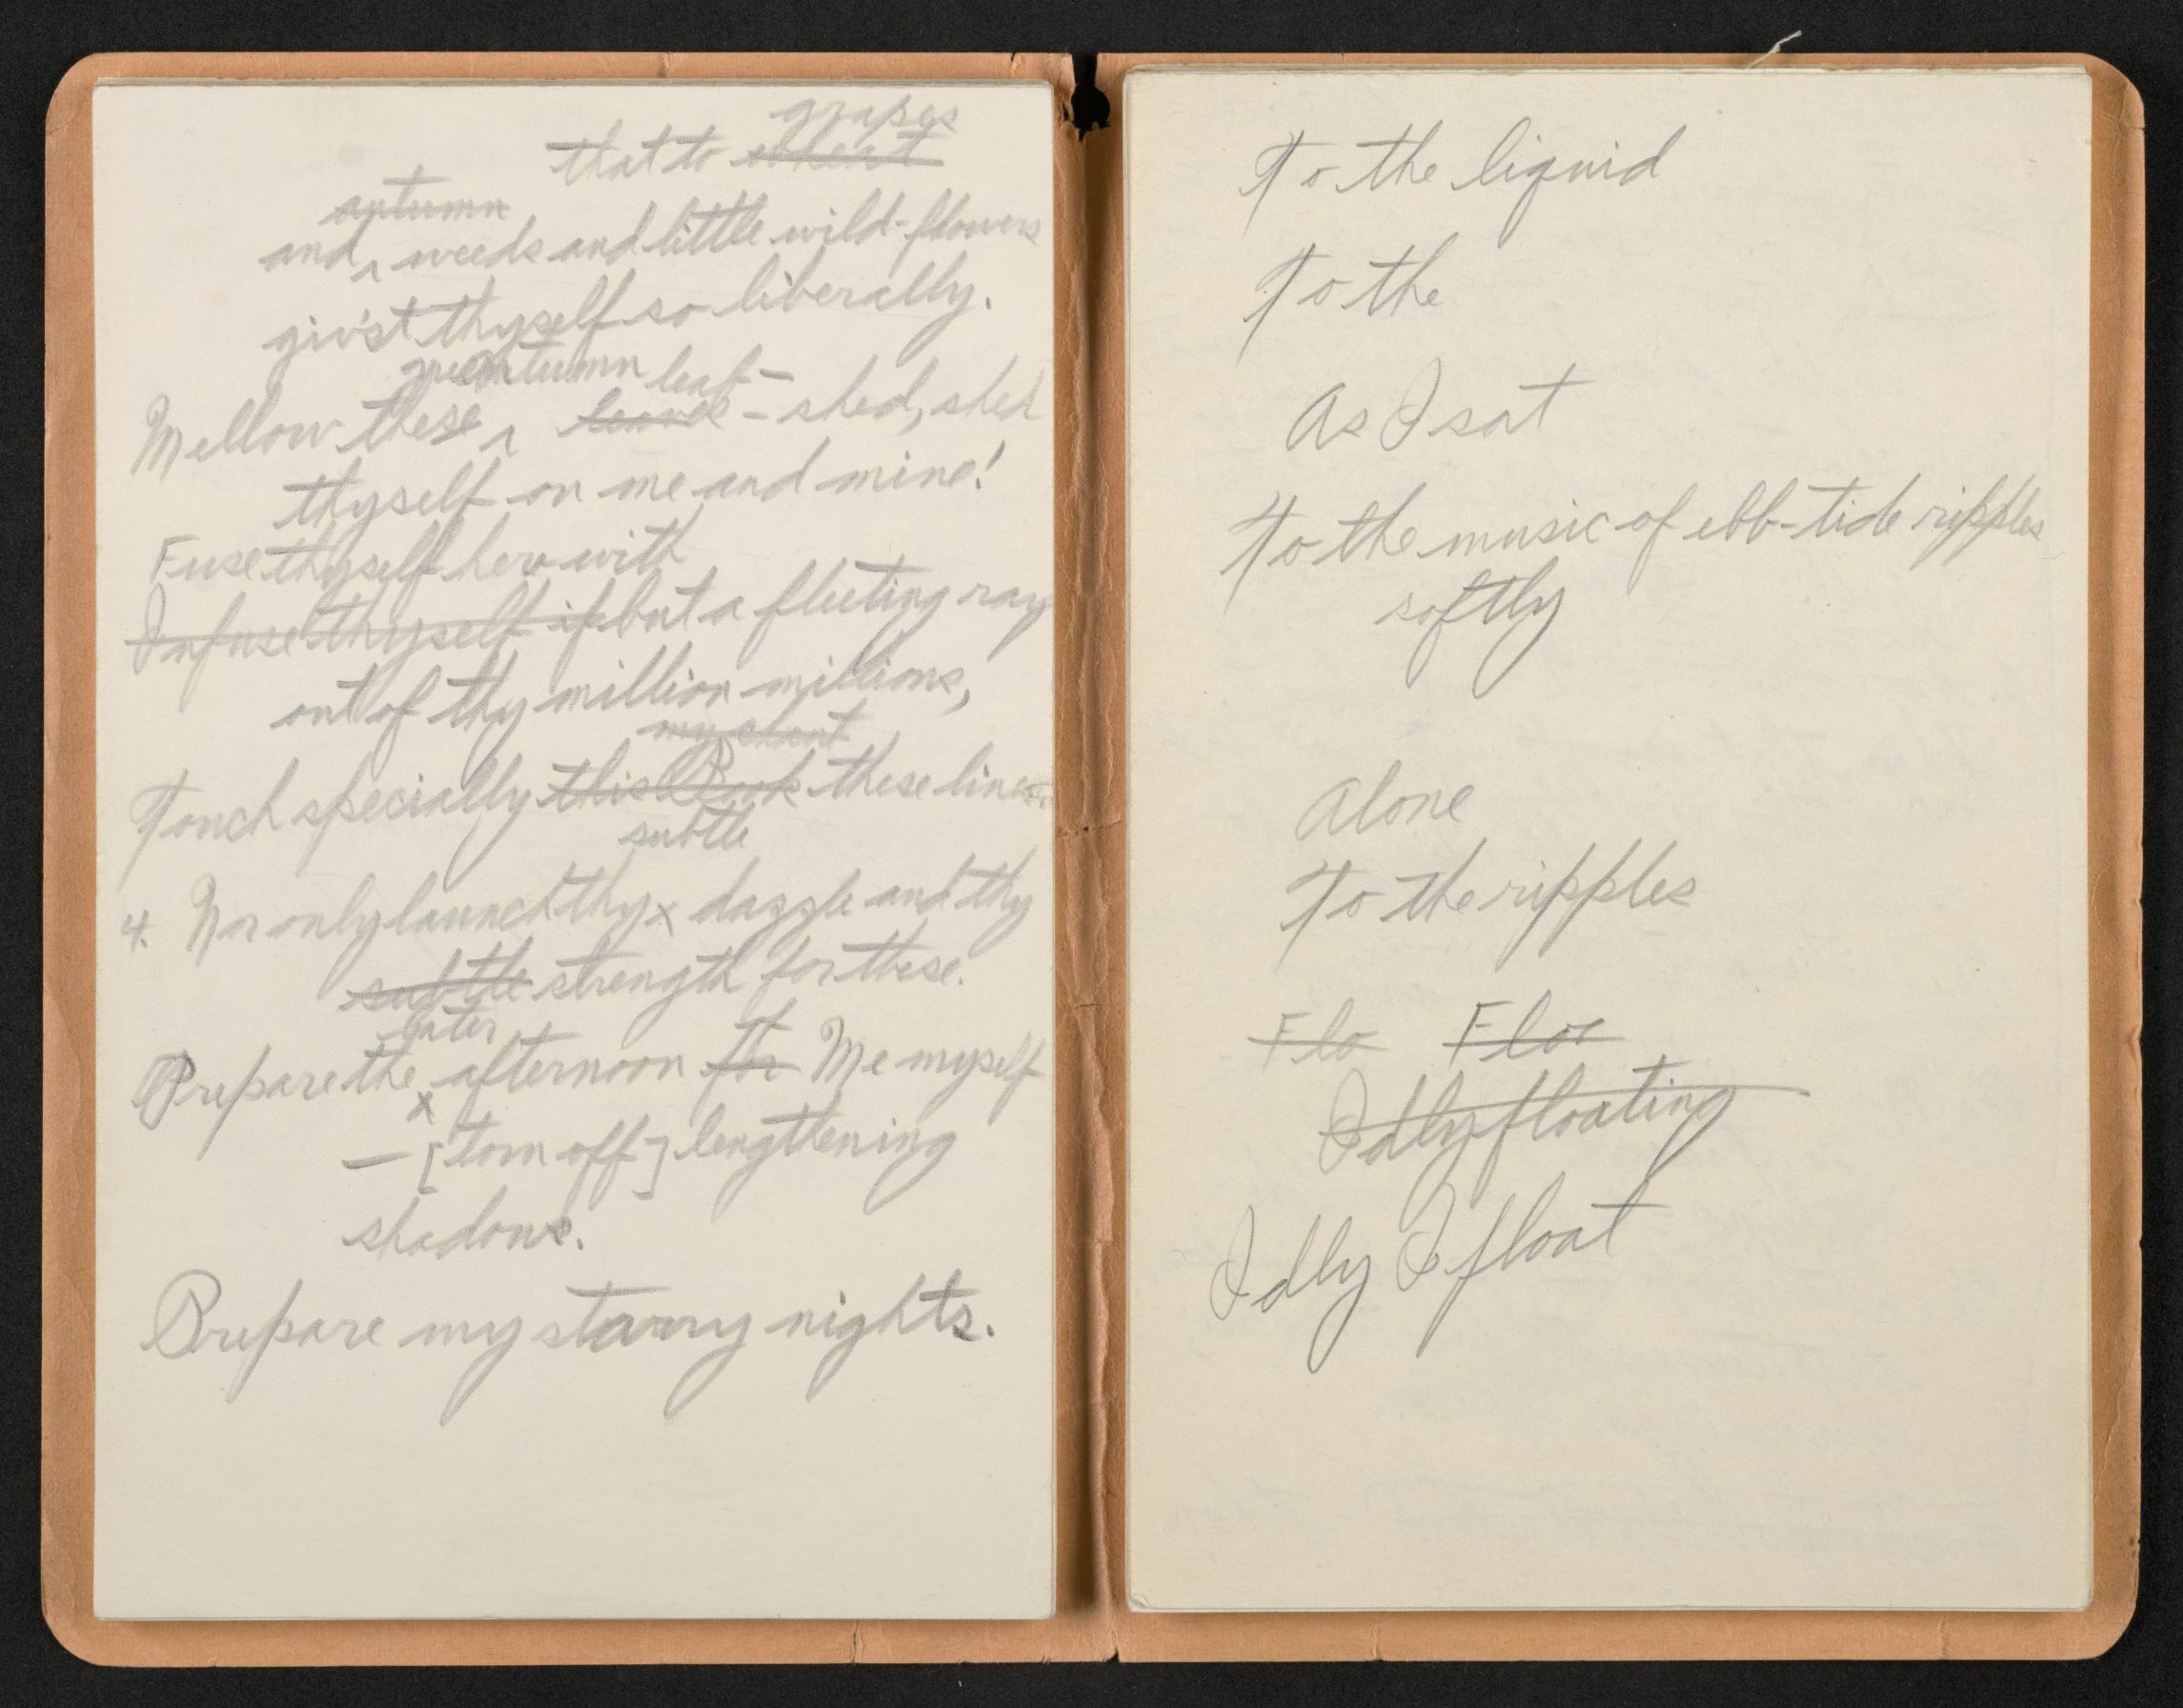 grapes
that to wheat
autumn
and ‸ weeds and little wild-flowers
giv'st thyself so liberally.
autumn leaf –
Mellow these ‸ leaves – shed, shed
thyself on me and mine!
Fuse thyself here with
Infuse thyself if but a fleeting ray
out of thy million millions,
my chant
Touch specially this Book these lines
subtle
4. Nor only launch thy x dazzle and thy
subtle strength for these.
later
Prepare the x afternoon for Me myself
— [torn off] lengthening
shadows.
Prepare my starry nights.
To the liquid
To the
As I sat
To the music of ebb-tide ripples
softly
Alone
To the ripples
Flo Floa
Idly floating
Idly I float